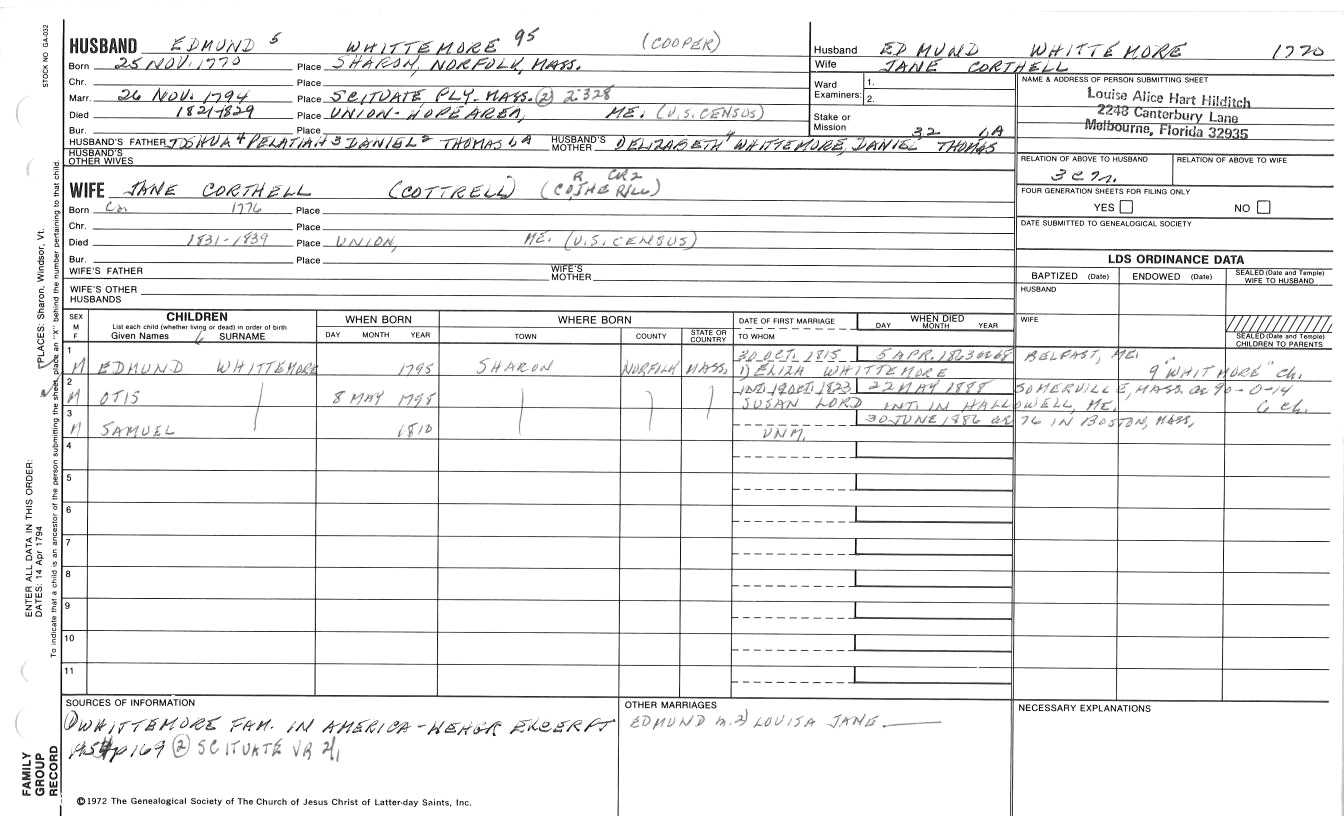 STOCK NO GA-032
HUSBAND EDMUND 5 WHITTEMORE 95 (COOPER)
Born 25 NOV. 1770 Place SHARON, NORFOLK, MASS.
Chr. Place
Marr. 26 NOV. 1794 Place SCITUATE PLY. MASS. (2) 2:328
Died 1821-1829 Place UNION-HOPE AREA, ME. (U.S. CENSUS)
Bur. Place
HUSBAND'S FATHER JOSHUA 4 PELATIAH 3 DANIEL 2 THOMAS HUSBAND'S MOTHER ELIZABETH 4 WHITTEMORE, DANIEL THOMAS
HUSBAND'S OTHER WIVES
Husband EDMUND WHITTEMORE 1770
Wife JANE CORTHELL
Ward Examiners: 1. 2.
Stake or Mission 32
NAME & ADDRESS OF PERSON SUBMITTING SHEET
Louise Alice Hart Hilditch
2248 Canterbury Lane
Melbourne, Florida 32935
RELATION OF ABOVE TO HUSBAND RELATION OF ABOVE TO WIFE
FOUR GENERATION SHEETS FOR FILING ONLY
YES NO
DATE SUBMITTED TO GENEALOGICAL SOCIETY
WIFE JANE CORTHELL (COTTRELL)
Born Ca. 1776 Place
Chr. Place
Died 1831-1839 Place UNION, ME. (U.S. CENSUS)
Bur. Place
WIFE'S FATHER WIFE'S MOTHER
WIFE'S OTHER HUSBANDS
LDS ORDINANCE DATA
BAPTIZED (Date) ENDOWED (Date) SEALED (Date and Temple) WIFE TO HUSBAND
HUSBAND
WIFE
SEALED (Date and Temple) CHILDREN TO PARENTS
SEX M F
CHILDREN
List each child (whether living or dead) in order of birth
Given Names 6 SURNAME
WHEN BORN
DAY MONTH YEAR
WHERE BORN
TOWN COUNTY STATE OR COUNTRY
DATE OF FIRST MARRIAGE
TO WHOM
WHEN DIED
DAY MONTH YEAR
1 M EDMUND WHITTEMORE 1795 SHARON NORFOLK MASS. 30 OCT. 1815 5 APR. BELFAST, ME.
1) ELIZA WHITTEMORE 9 "WHITMORE" Ch.
2 M OTIS 8 MAY 1798 1823 22 MAY 1888 SOMERVILLE, MASS. ae 90-0-14
SUSAN LORD INT. IN HALLOWELL, ME. 6 Ch.
3 M SAMUEL 1810 30 JUNE 1886 ae 76 IN BOSTON, MASS,
UNM.
4
5
6
7
8
9
10
11
SOURCES OF INFORMATION
(1) WHITTEMORE FAM. IN AMERICA - NEHGR EXCERPT
p169 (2) SCITUATE VR
OTHER MARRIAGES
EDMUND m. 2) LOUISA JANE
NECESSARY EXPLANATIONS
©1972 The Genealogical Society of The Church of Jesus Christ of Latter-day Saints, Inc.
FAMILY GROUP RECORD
ENTER ALL DATA IN THIS ORDER:
DATES: 14 Apr 1794
PLACES: Sharon, Windsor, Vt.
To indicate that a child is an ancestor of the person submitting the sheet, place an "X" behind the number pertaining to that child.